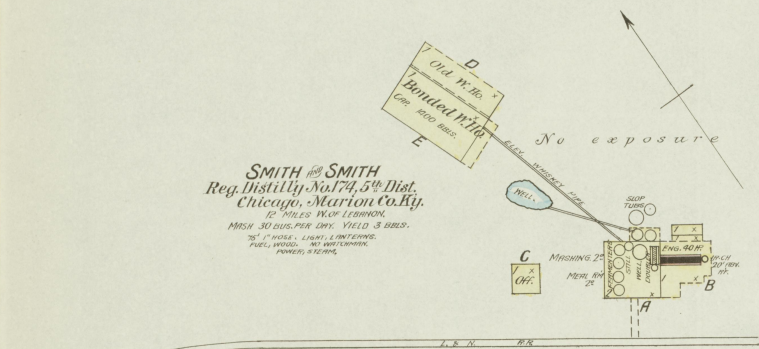 D
Old W. Ho.
Bonded W. Ho.
CAP. 1000 BBLS.
E
No exposure
ELEV. WHISKEY PIPE
WELL.
SLOP
TUBS
SMITH AND SMITH
Reg. Distill'y No. 174, 5th Dist.
Chicago, Marion Co. Ky.
12 MILES W. OF LEBANON.
MASH 30 BUS. PER DAY. YIELD 3 BBLS.
75' 1" HOSE. LIGHT, LANTERNS.
FUEL, WOOD. NO WATCHMAN.
POWER, STEAM.
C
Off.
MASHING. 2d
MEAL RM
2d
FERMENTERS
STILL
WELL
DOUBLER
ENG. 40 H.
20' ABV.
A
B
L. & N. R.R.